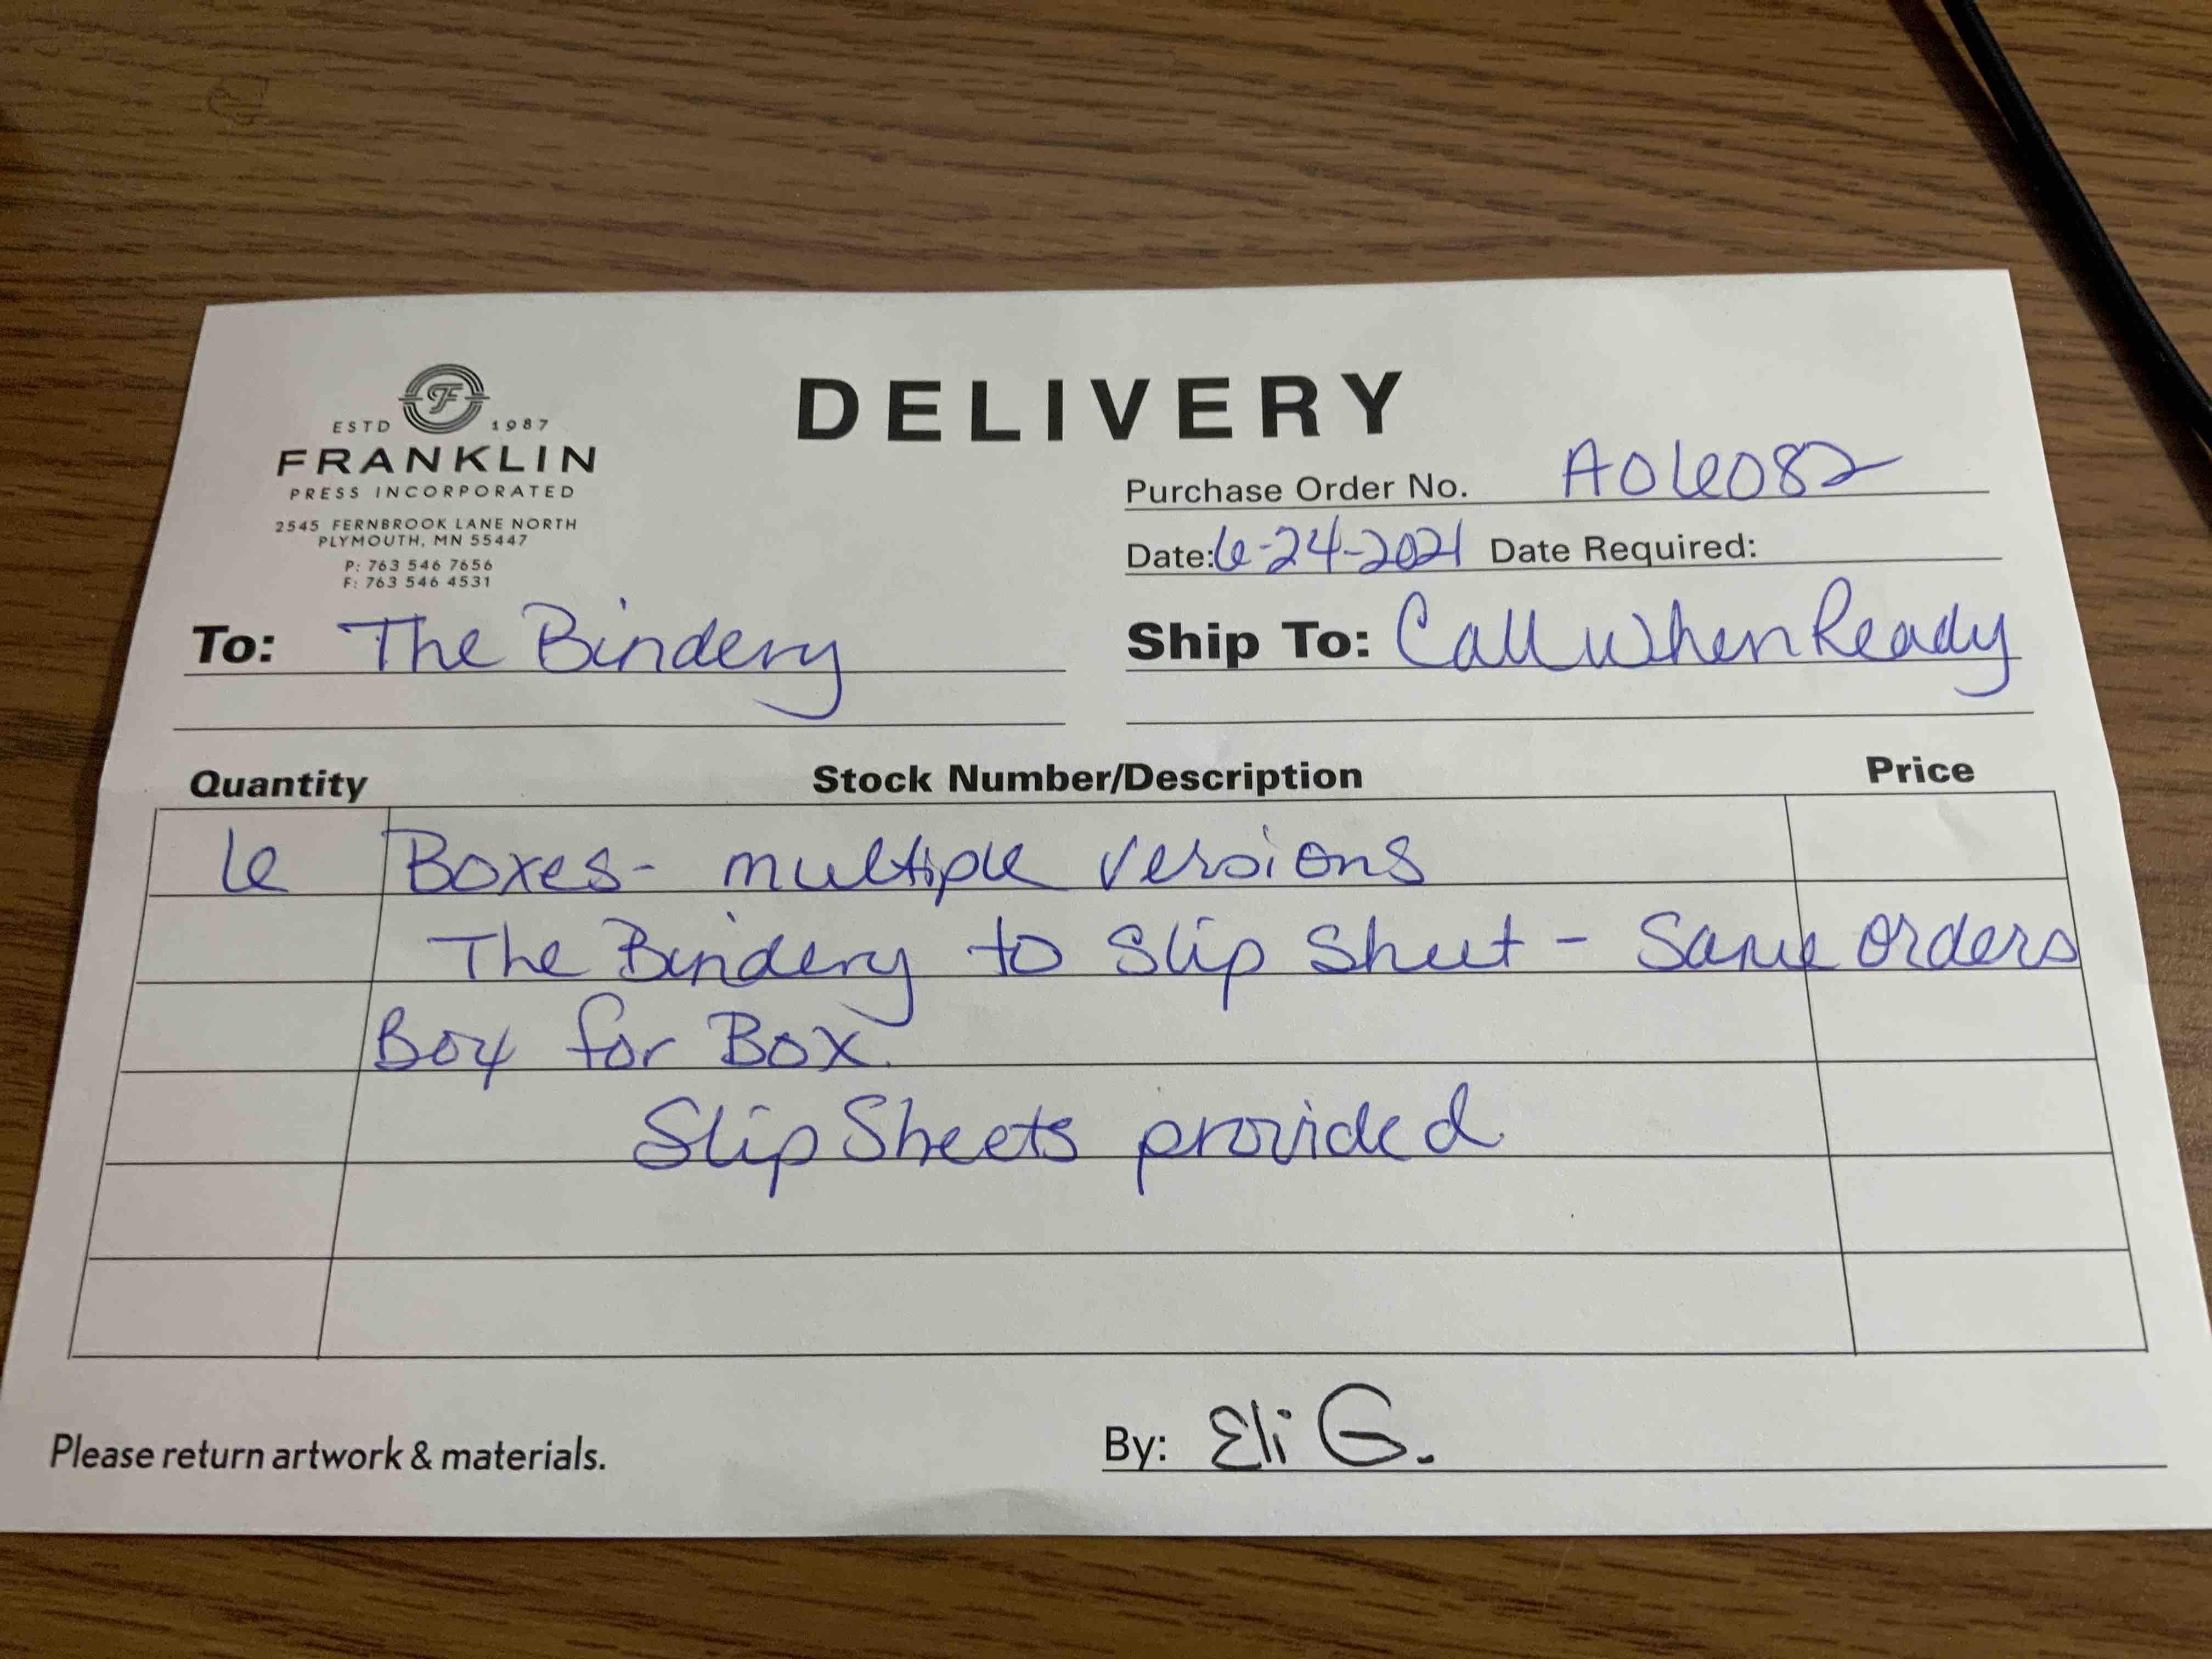 DELIVERY
ESTD 1987
FRANKLIN
PRESS INCORPORATED
2545 FERNBROOK LANE NORTH
PLYMOUTH, MN 55447
P: 763 546 7656
F: 763 546 4531
Purchase Order No. A06082
Date: 6-24-2021 Date Required:
To: The Bindery
Ship To: Call When Ready
Quantity Stock Number/Description Price
6 Boxes - multiple versions
The Bindery to Slip Sheet - Same orders
Box for Box.
Slip Sheets provided
Please return artwork & materials.
By: Eli G.